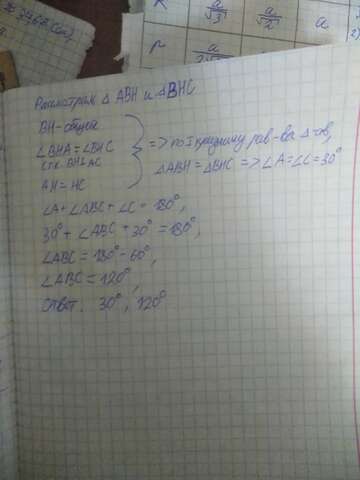 R a/√3 a/√2 a
r a
Рассмотрим Δ ABH и ΔBHC
BH - общая
∠BHA = ∠BHC
(т.к. BH⊥AC
AH = HC
=> по I признаку рав-ва Δ-ов,
ΔABH = ΔBHC => ∠A = ∠C = 30°
∠A + ∠ABC + ∠C = 180°,
30° + ∠ABC + 30° = 180°,
∠ABC = 180° - 60°,
∠ABC = 120°,
Ответ. 30°, 120°